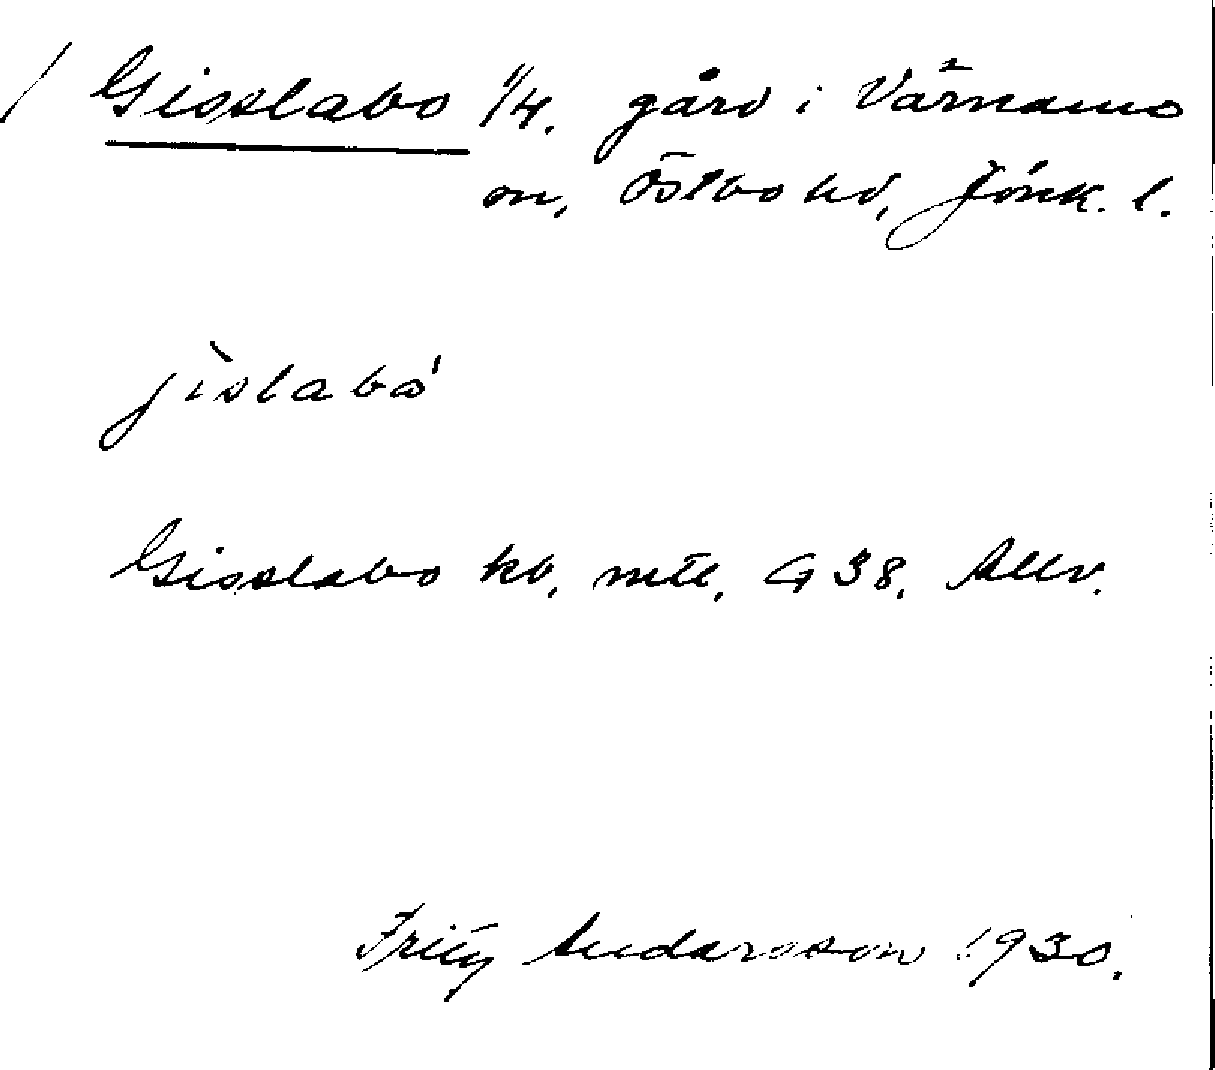 / Gisslabo 1/4. gård i Värnamo
sn, Östbo hd, Jönk. l.
jìslabo'
Gisslabo kb. mtl. G 38. Allv.
Fritz Andersson 1930.